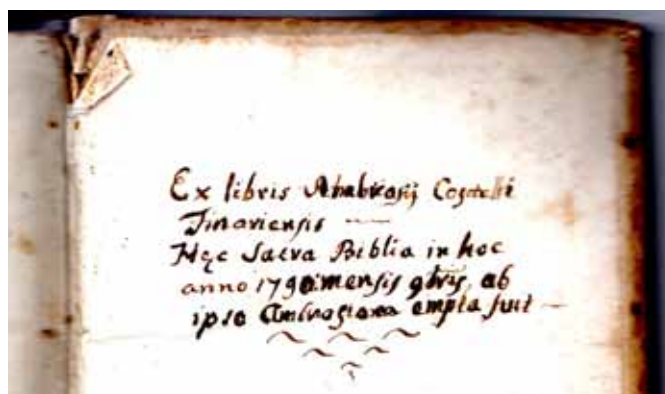 Ex libris Ambrosij
Finariensis
Hęc Sacra Biblia in hoc
anno 1790 mensis 9bris, ab
ipso empta fuit